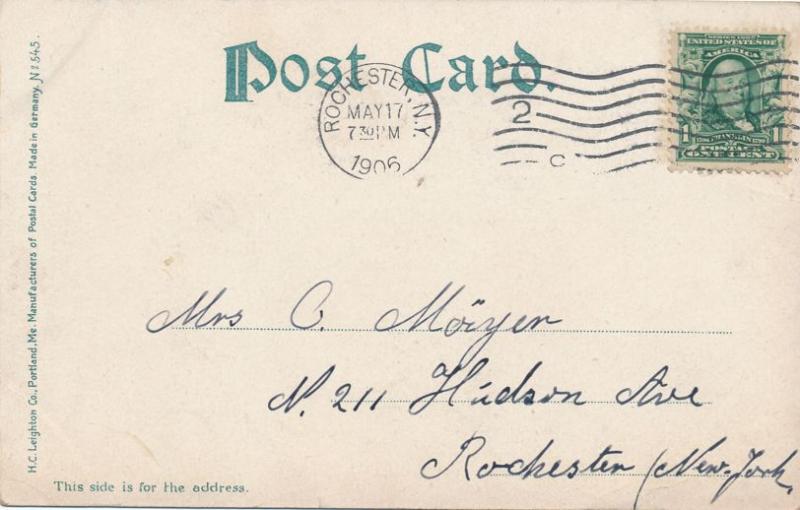 Post Card.
ROCHESTER, N.Y.
MAY 17
7 30 PM
1906
2
C
SERIES 1902
UNITED STATES OF
AMERICA
1 FRANKLIN 1
POSTAGE
ONE CENT
Mrs C. Möyer
N. 211 Hudson Ave
Rochester (New-York
This side is for the address.
H.C. Leighton Co., Portland, Me. Manufacturers of Postal Cards. Made in Germany. No 545.